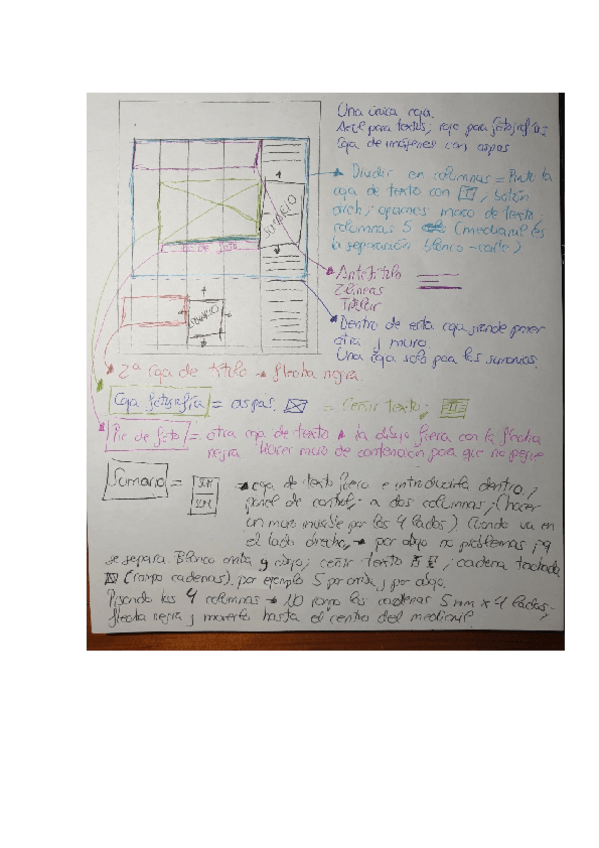 Una única caja.
Azul para textos; rojo para fotografías
Caja de imágenes con aspas
Dividir en columnas = Pincho la
caja de texto con , botón
drch; opciones marco de texto;
columnas 5 (medianil es
la separación blanco-calle)
Antetítulo
2 líneas
Dentro de esta caja puedo poner
otra y muro.
Una caja solo para los sumarios.
SUMARIO
Pie de foto
SUMARIO
2ª Caja de título → flecha negra.
Caja fotografía = aspas. = Ceñir texto;
Pie de foto = otra caja de texto la dibujo fuera con la flecha
negra Hacer muro de contención para que no pegue
Sumario = → caja de texto fuera e introducirla dentro;
panel de control; a dos columnas; (hacer
un muro invisible por los 4 lados). Cuando va en
el lado derecho, → por abajo no problemas; q
se separa Blanco arriba y abajo; ceñir texto , cadena tachada
(rompo cadenas). por ejemplo 5 por arriba y por abajo.
Pisando las 4 columnas → No rompo las cadenas 5 mm x 4 lados;
flecha negra y moverlo hasta el centro del medianil.